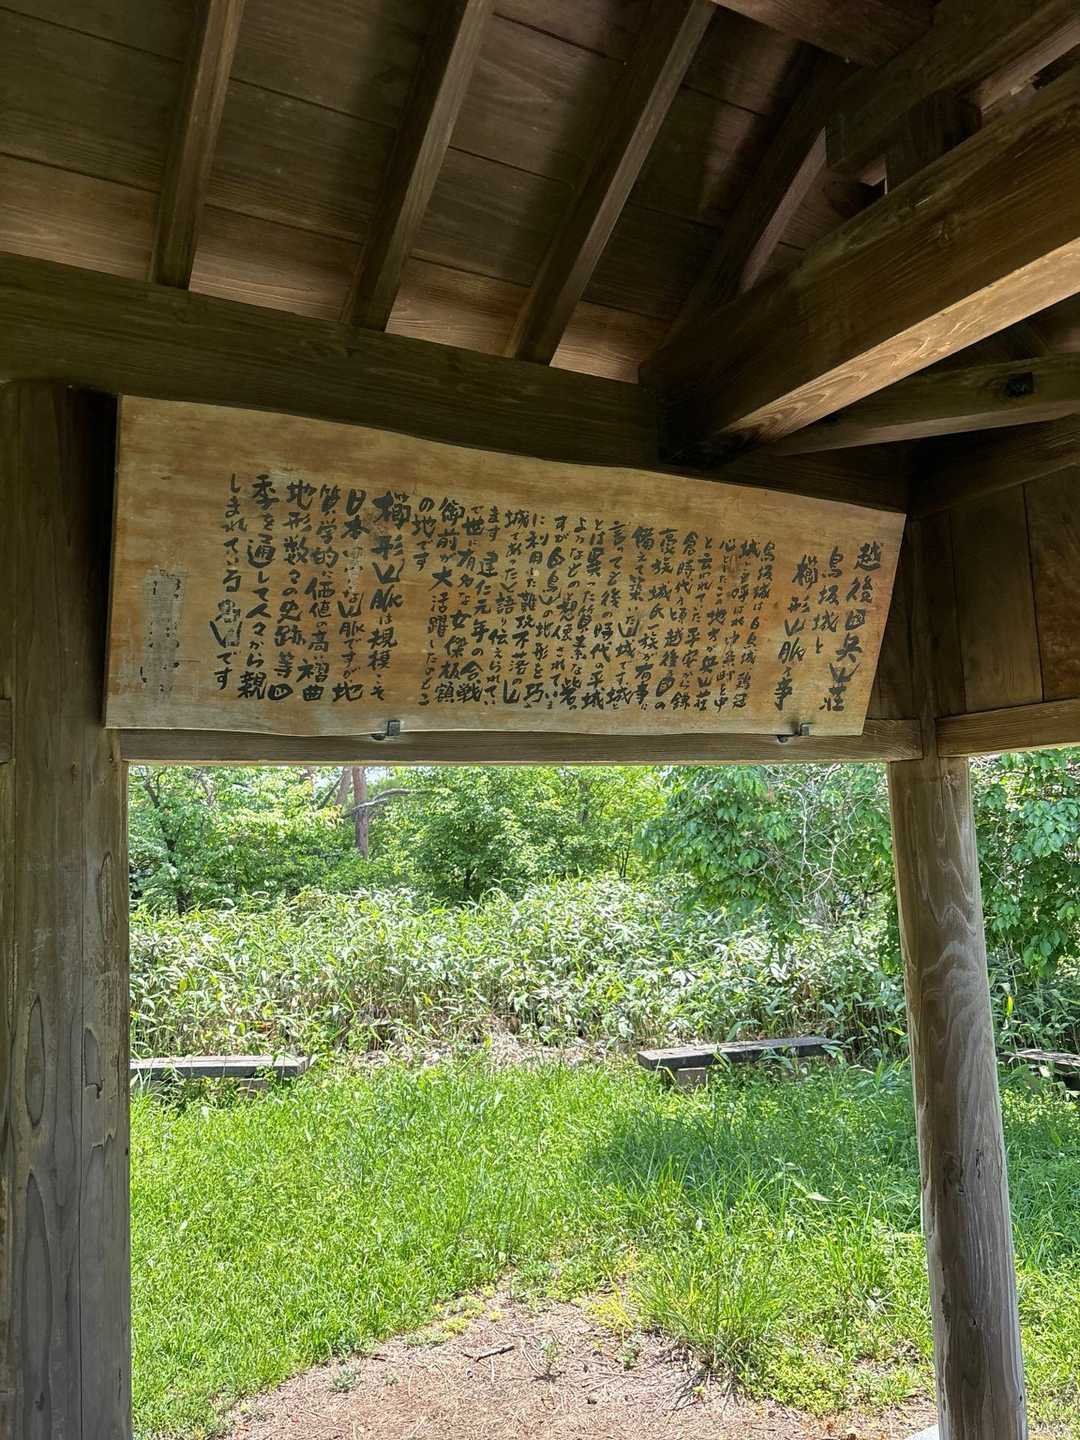 越後国奥山荘
鳥坂城と
櫛形山脈の事
鳥坂城は白鳥城鶏冠
城とも呼ばれ中条町を中
心としたこの地方が奥山荘
と云われていた平安から鎌
倉時代の頃越後の国の
豪族城氏一族が有事に
備えて築いた山城です城と
言っても後の時代の平城
とは異った質素な砦の
ようなものと想像されていま
すが白鳥山の地形を巧み
に利用した難攻不落の山
城であったと語り伝えられてい
ます 建仁元年の合戦
で世に有名な女傑板額
御前が大活躍したのもこ
の地です
櫛形山脈は規模こそ
日本一小さな山脈ですが地
質学的な価値の高い褶曲
地形数々の史跡等四
季を通して人々から親
しまれている名山です